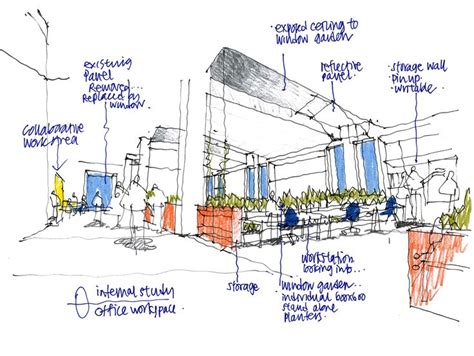 exposed ceiling to
window garden
existing
panel
removed...
replaced by
window
reflective
panel
storage wall
pin up
writable
collaborative
work area
storage
workstation
looking into...
window garden...
individual boxes
stand alone
planters
internal study
office workspace